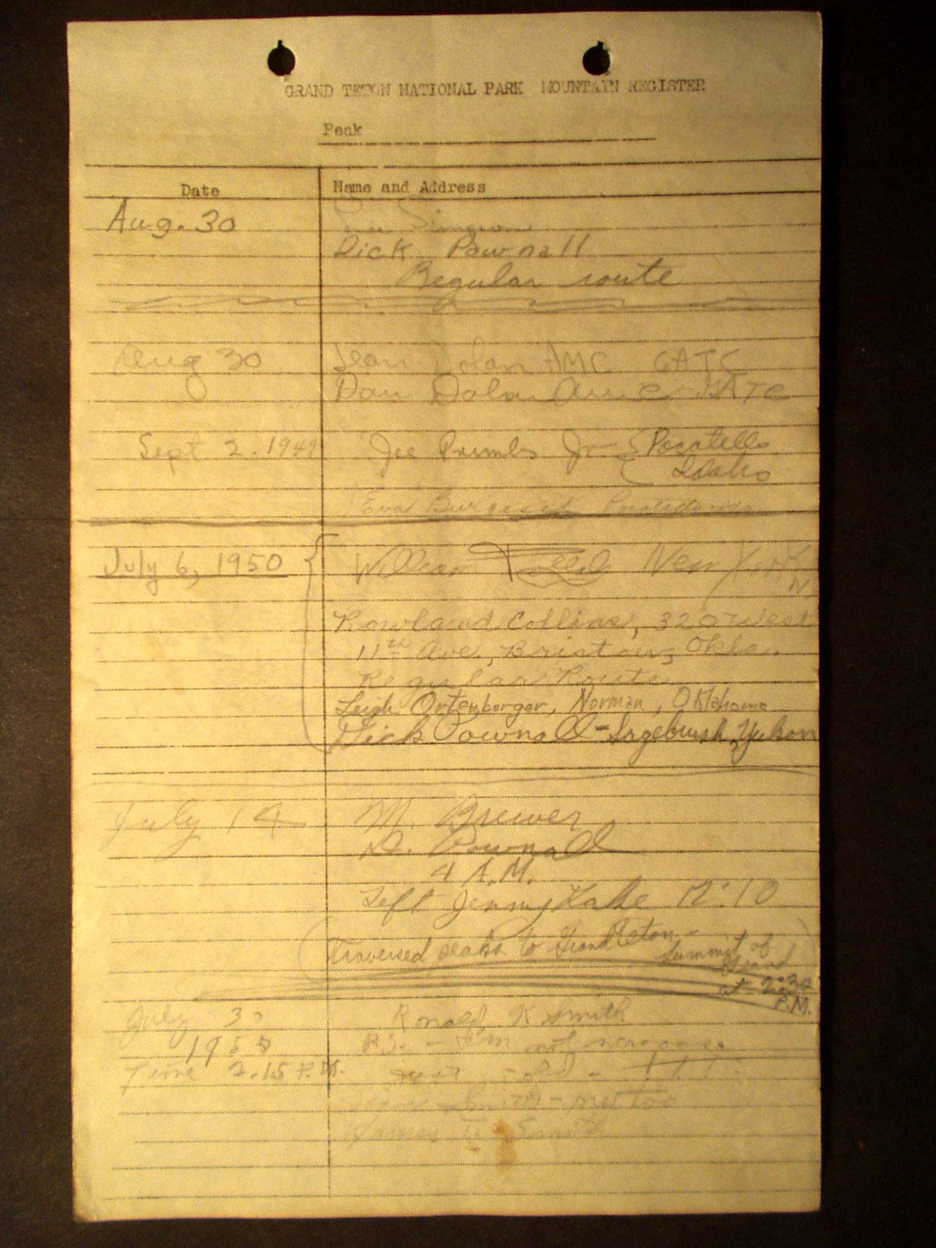 GRAND TETON NATIONAL PARK MOUNTAIN REGISTER
Peak
Date Name and Address
Aug. 30
Dick Pownall
Regular route
Aug 30 Jean Dolan AMC GATC
Dan Dolan
Sept. 2. 1949 Joe Jr Pocatello
Idaho
Eva
July 6, 1950 William New York
N
Rowland Collins, 320 West
11th Ave, Okla.
Regular Route
Leigh Ortenburger, Norman, Oklahoma
Dick Pownall - Sagebrush, Yukon
July 14 M. Brewer
D. Pownall
4 A.M.
Left Jenny Lake 12:10
Traversed peaks to Grand Teton -
Summit of
Grand
at 2:30
P.M.
July 30 Ronald K Smith
1950 P.S. - not
Time 2.15 P.M. just cold - !!!
Smith